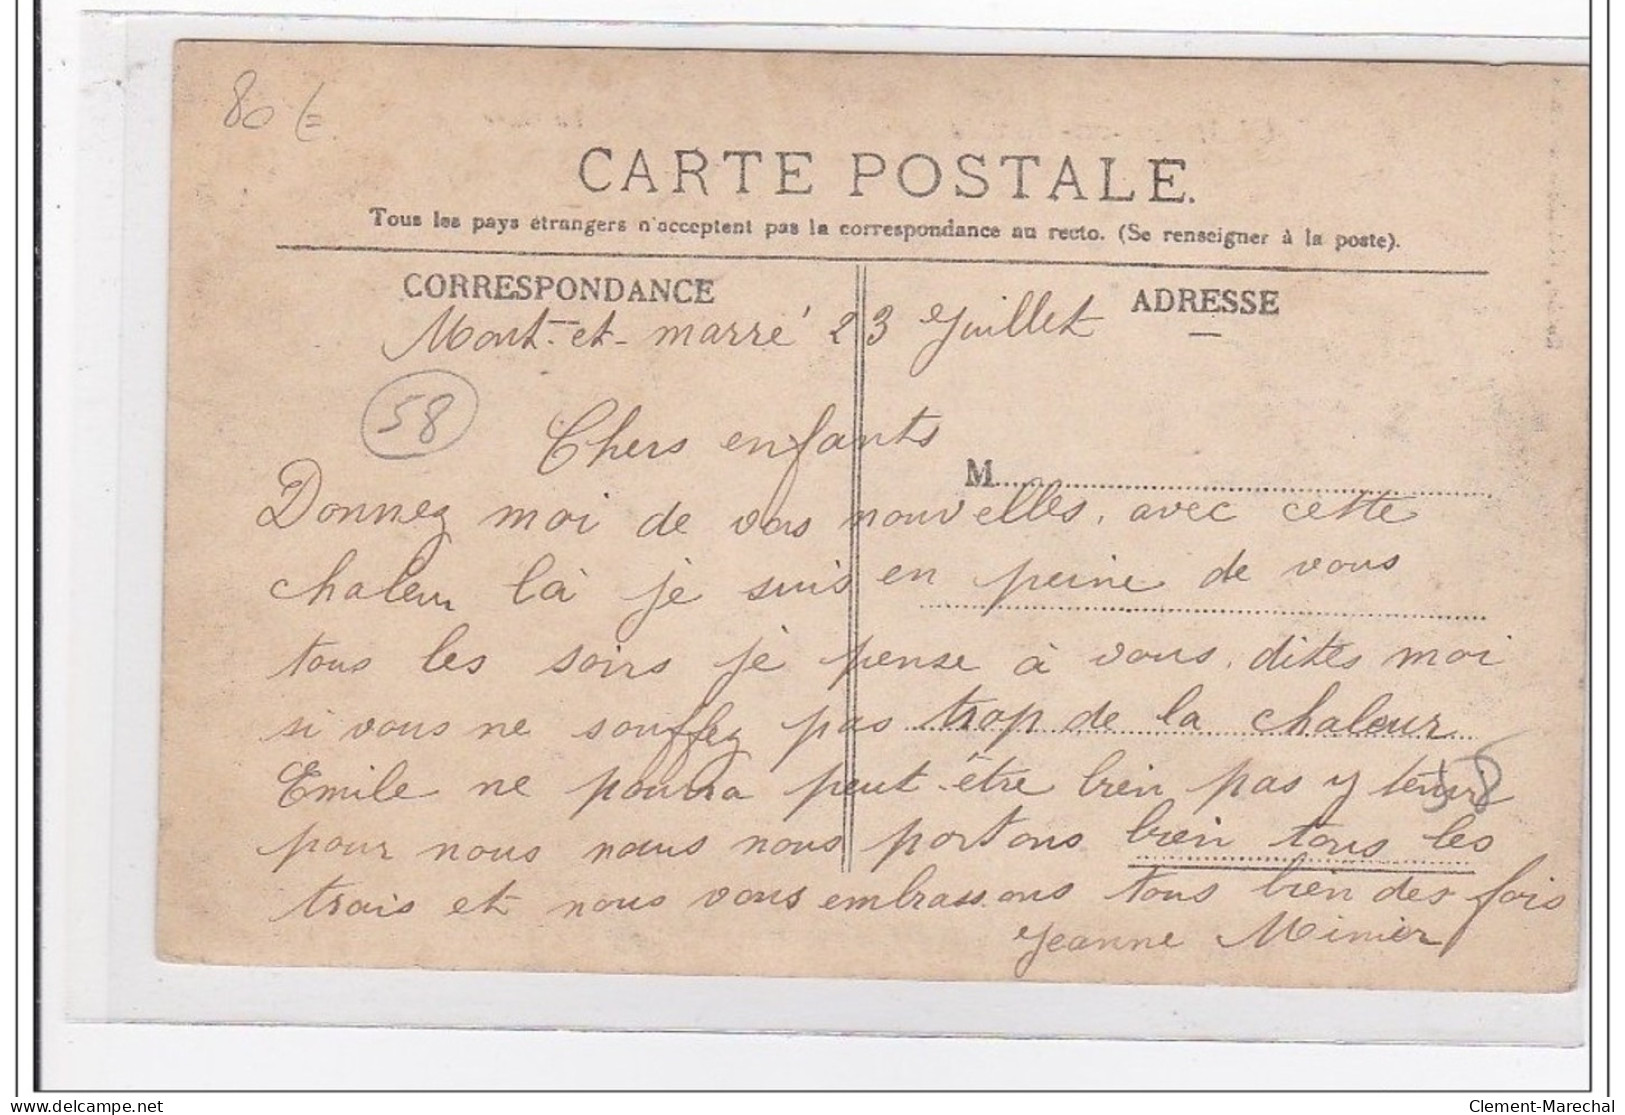 80 €
CARTE POSTALE.
Tous les pays étrangers n'acceptent pas la correspondance au recto. (Se renseigner à la poste).
CORRESPONDANCE
ADRESSE
Mont-et-marré 23 Juillet
58
Chers enfants
M
Donnez moi de vos nouvelles, avec cette
chaleur là je suis en peine de vous
tous les soirs je pense à vous, dites moi
si vous ne souffez pas trop de la chaleur
Emile ne pourra peut-être bien pas y tenir
58
pour nous nous nous portons bien tous les
trois et nous vous embrassons tous bien des fois
Jeanne Minier
delcampe.net
Clement-Marechal